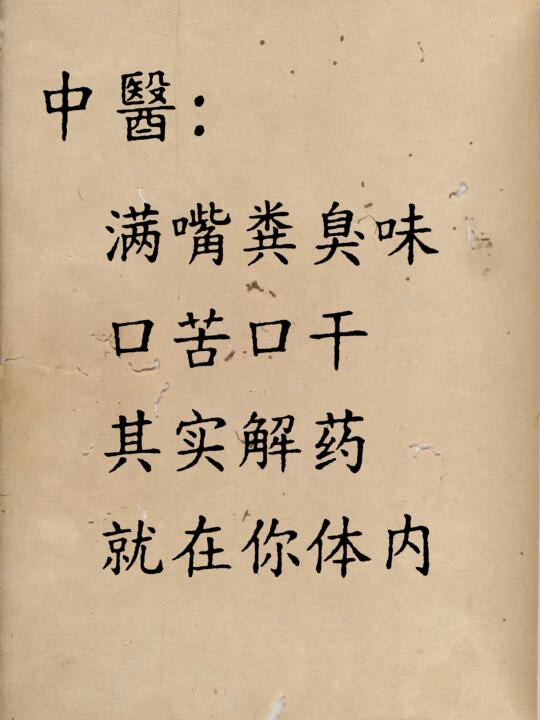 中醫：
满嘴粪臭味
口苦口干
其实解药
就在你体内